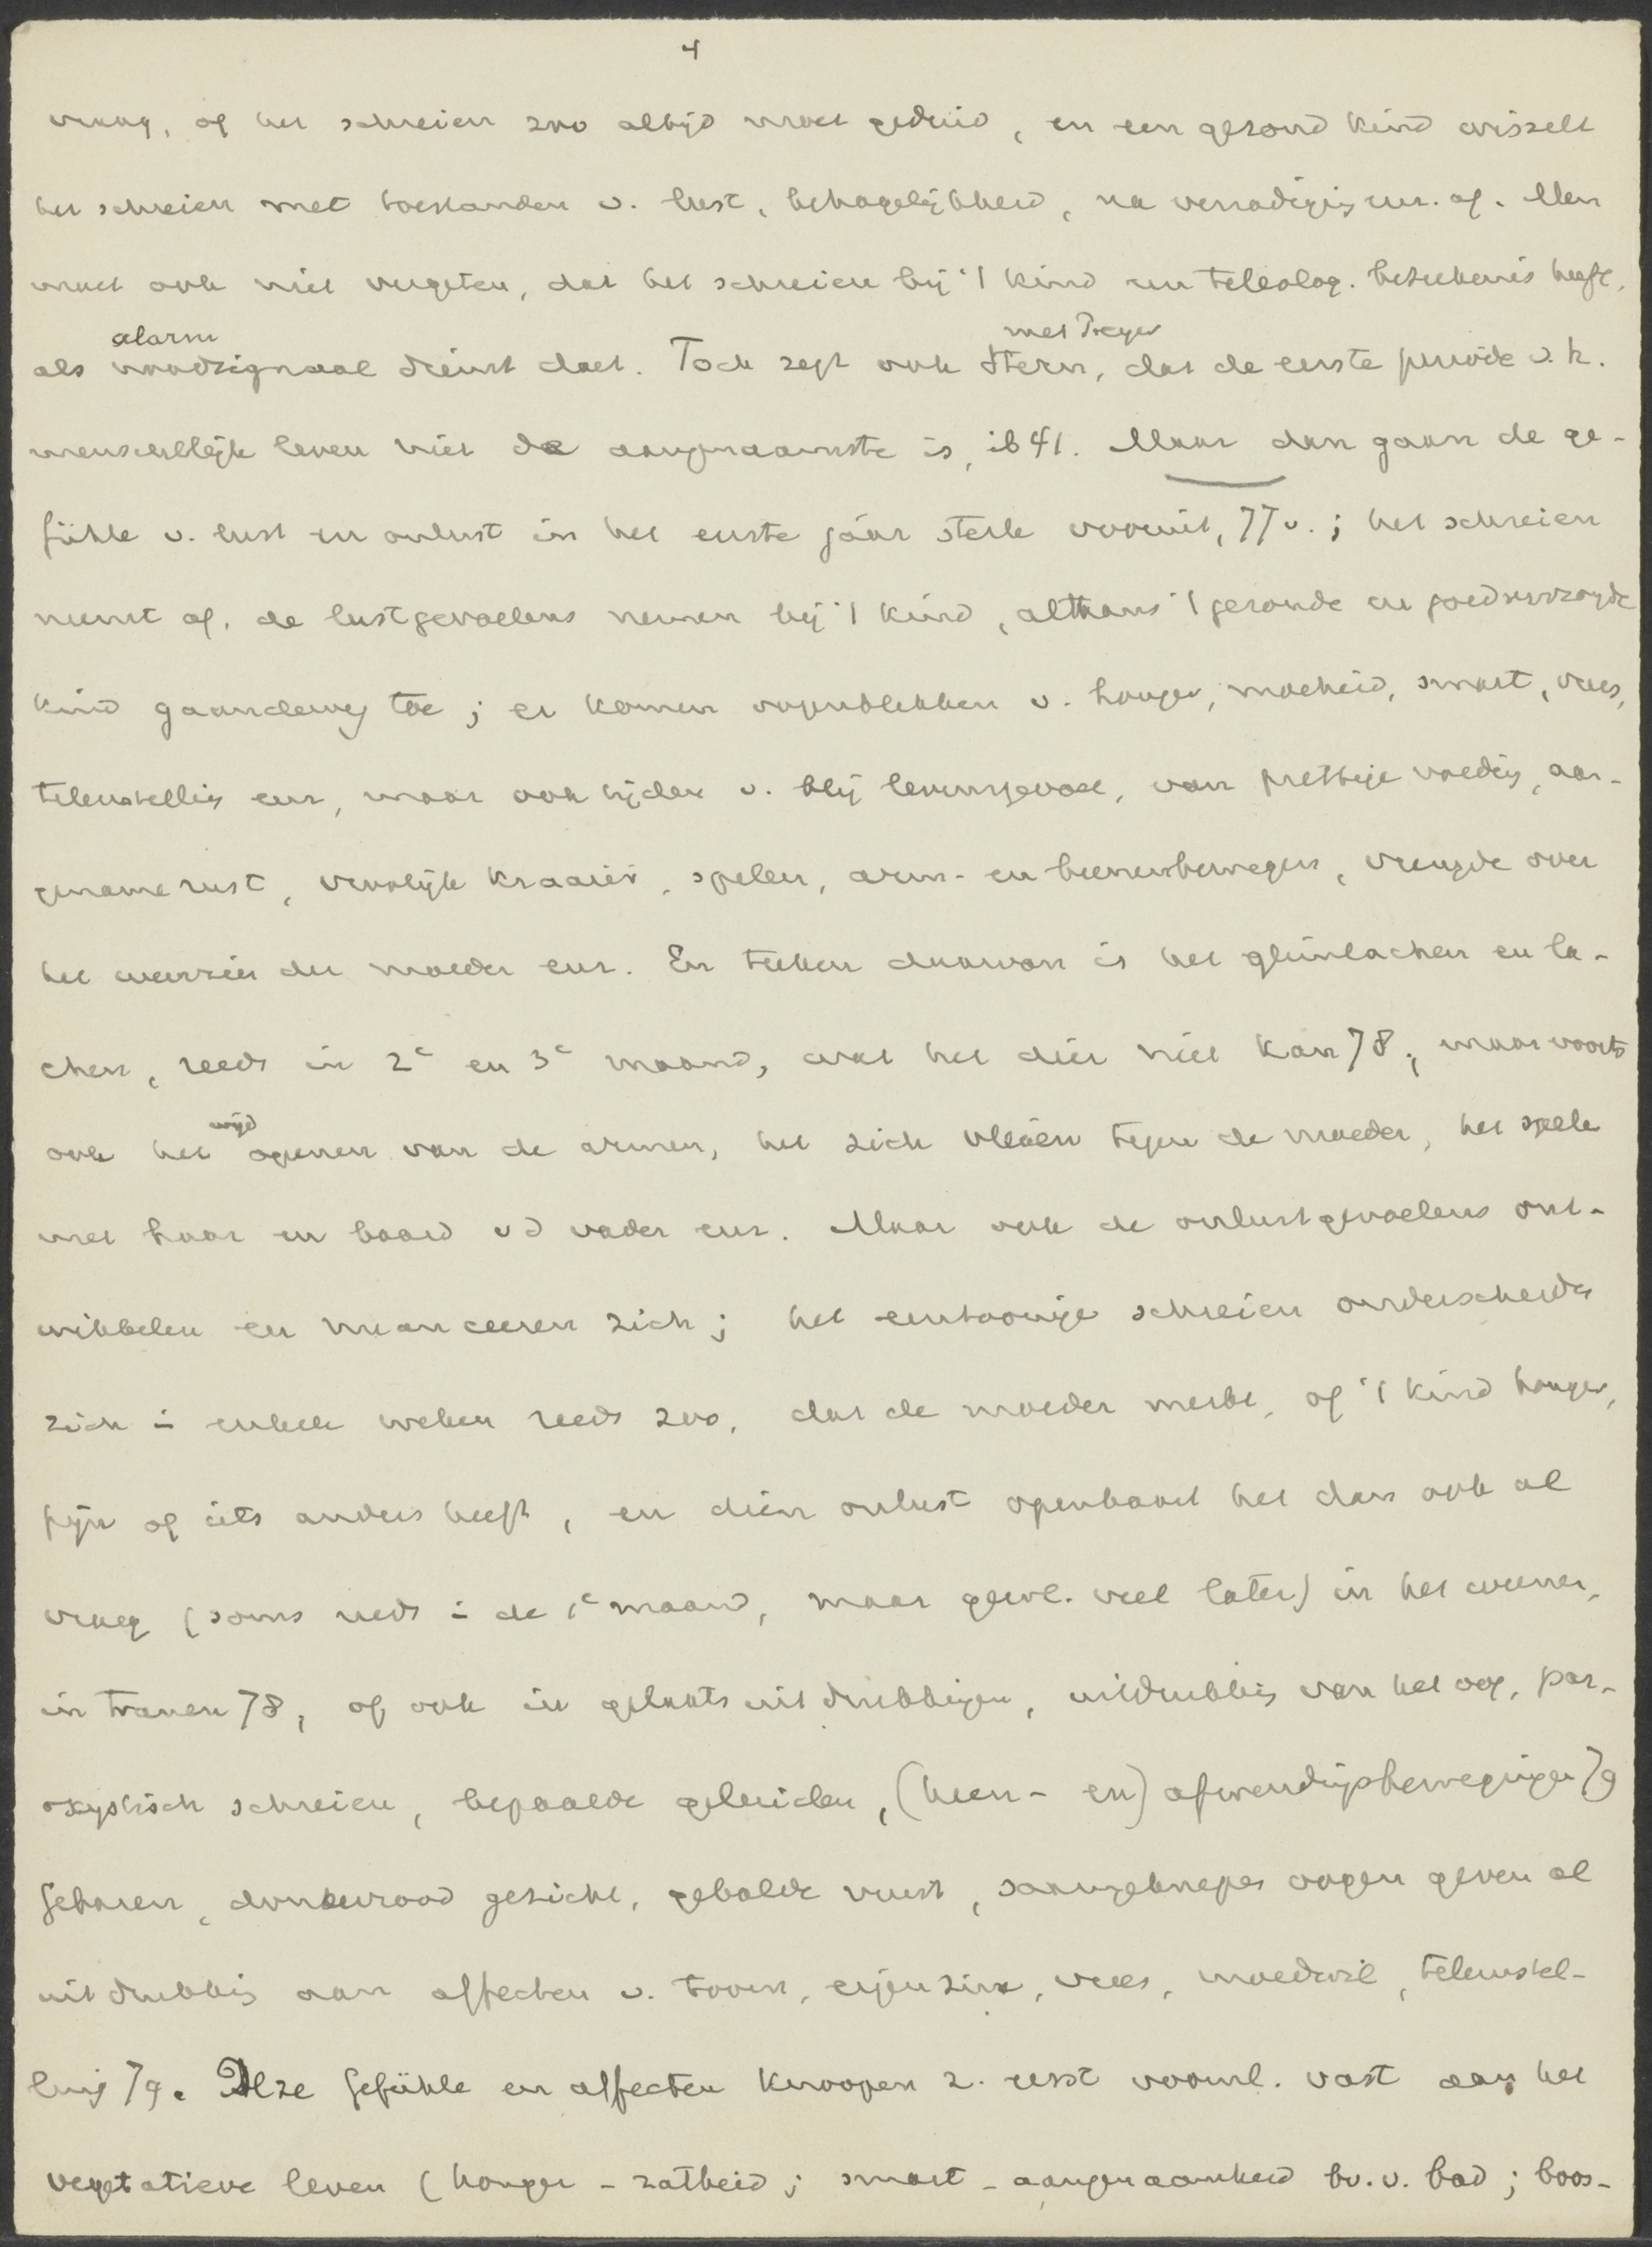 4
vraag, of het schreien zoo altijd moet geduid, en een gezond kind wisselt
het schreien met toestanden v. lust, behagelijkheid, na verzadiging enz. af. Men
moet ook niet vergeten, dat het schreien bij 't kind een teleolog. beteekenis heeft,
alarm met Preyer
als noodsignaal dienst doet. Toch zegt ook Stern, dat de eerste periode v. h.
menschelijk leven niet de aangenaamste is, ib 41. Maar dan gaan de ge-
fühle v. lust en onlust in het eerste jaar sterk vooruit, 77 v.; het schreien
neemt af, de lustgevoelens nemen bij 't kind, althans 't gezonde en goedverzorgde
kind gaandeweg toe; er komen oogenblikken v. honger, moeheid, smart, vrees,
teleurstelling enz, maar ook tijden v. blij levensgevoel, van prettige voeding, aan-
gename rust, vroolijk kraaien, spelen, arm- en beenenbewegen, vreugde over
het weerzien der moeder enz. En teeken daarvan is het glimlachen en la-
chen, reeds in 2e en 3e maand, wat het dier niet kan 78; maar voorts
wijd
ook het openen van de armen, het zich vleien tegen de moeder, het spele
met haar en baard vd vader enz. Maar ook de onlustgevoelens ont-
wikkelen en nuanceeren zich; het eentoonige schreien onderscheidt
zich in enkele weken reeds zoo, dat de moeder merkt, of 't kind honger,
pijn of iets anders heeft, en dien onlust openbaart het dan ook al
vroeg (soms reeds in de 1e maand, maar gewl. veel later) in het weenen,
in tranen 78, of ook in gelaatsuitdrukkingen, uitdrukking van het oog, par-
oxystisch schreien, bepaalde geluiden, (heen- en) afwendingsbewegingen 79
Gebaren, donkerrood gezicht, gebalde vuist, saamgeknepen oogen geven al
uitdrukking aan affecten v. toorn, eigenzin, vrees, moedwil, teleurstel-
ling 79. Deze Gefühle en affecten knoopen z. eerst voornl. vast aan het
vegetatieve leven (honger - zatheid; smart - aangenaamheid bv. v. bad; boos-